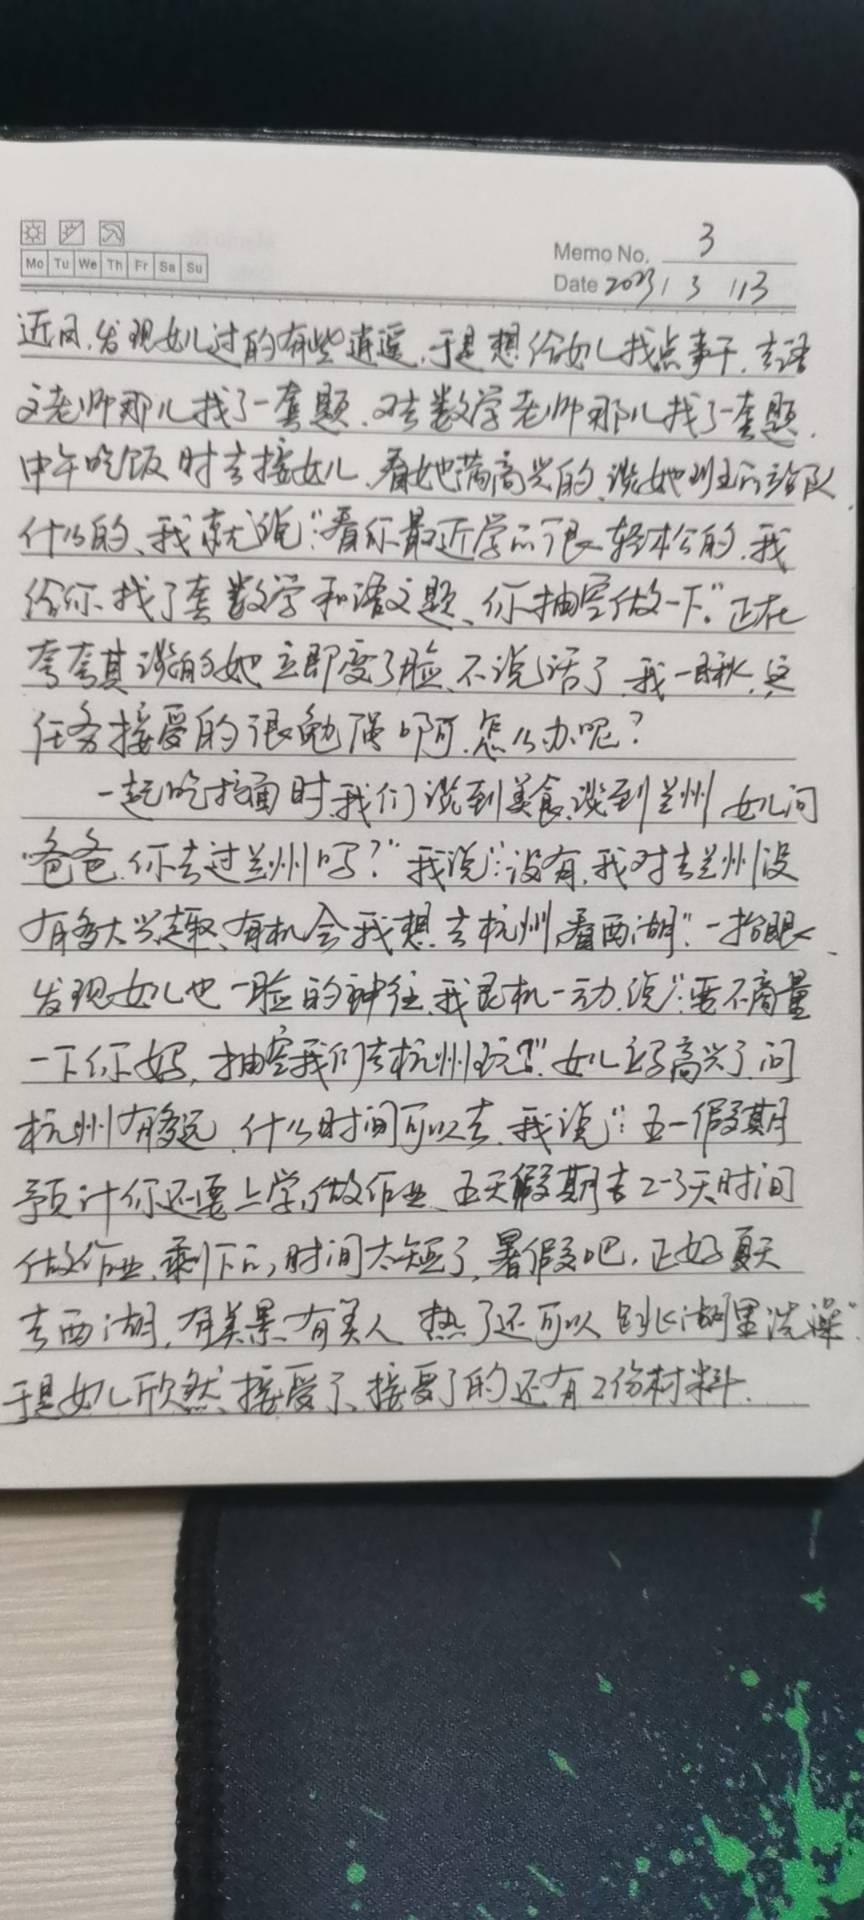 Mo Tu We Th Fr Sa Su
Memo No. 3
Date 2023 / 3 / 13
近日,发现女儿过的有些逍遥,于是想给女儿找点事干,去语
文老师那儿找了一套题,又去数学老师那儿找了一套题,
中午吃饭时去接女儿,看她满高兴的,说她班上的
什么的,我就说:"看你最近学的很轻松的,我
给你找了套数学和语文题,你抽空做一下。"正在
夸夸其谈的她立即变了脸,不说话了,我一瞅,这
任务接受的很勉强啊,怎么办呢?
一起吃拉面时,我们说到美食,谈到兰州,女儿问
"爸爸,你去过兰州吗?"我说:"没有,我对去兰州没
有多大兴趣,有机会我想去杭州,看西湖"。一抬眼,
发现女儿也一脸的神往,我灵机一动,说:"要不商量
一下你妈,抽空我们去杭州玩?"女儿立马高兴了,问
杭州有多远,什么时间可以去,我说:"五一假期
预计你还要上学,做作业,五天假期去2-3天时间
做作业,剩下的时间太短了,暑假吧,正好夏天
去西湖,有美景,有美人,热了还可以跳湖里洗澡"。
于是女儿欣然接受了,接受了的还有2份材料.